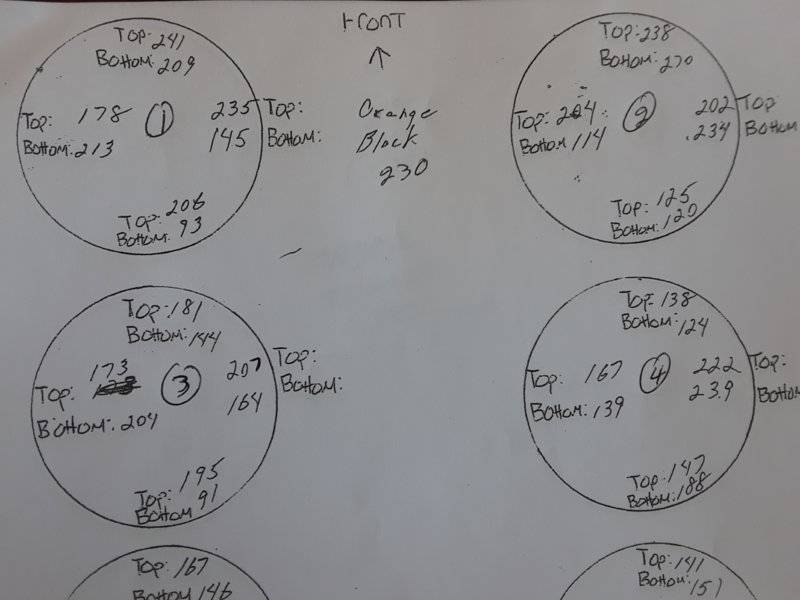 FRONT
↑
Orange
Block
230
Top: 241
Bottom: 209
Top: 178
Bottom: 213
1
235 Top:
145 Bottom:
Top: 206
Bottom: 93
Top: 238
Bottom: 270
Top: 204
Bottom 114
2
202 Top
.234 Bottom
Top: 125
Bottom: 120
Top: 181
Bottom: 144
173
Top:
Bottom: 204
3
207 Top:
164 Bottom:
195
Top:
Bottom 91
Top: 138
Bottom: 124
Top: 167
Bottom: 139
4
222 Top:
23.9 Bottom
Top: 147
Bottom: 188
Top: 167
Bottom 146
Top: 141
Bottom: 151